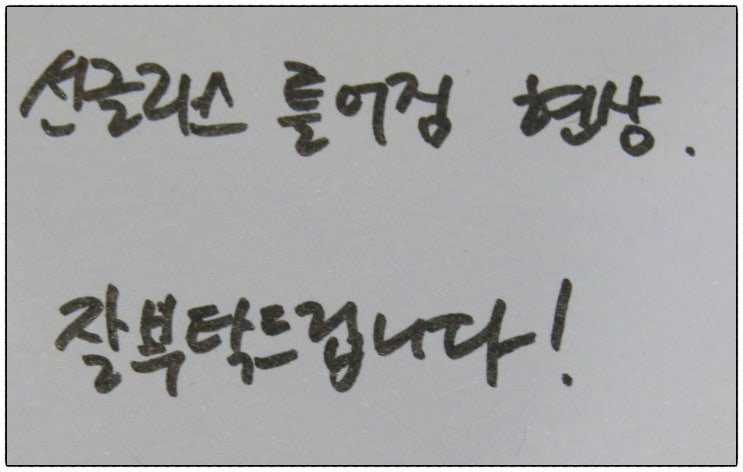 선글라스 틀어짐 현상.
잘부탁드립니다!